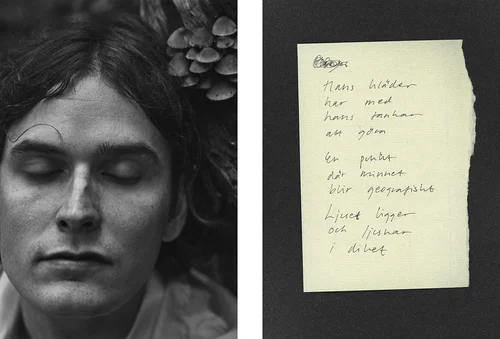 Hans kläder
har med
hans tankar
att göra
En punkt
där minnet
blir geografiskt
Ljuset ligger
och ljusnar
i diket